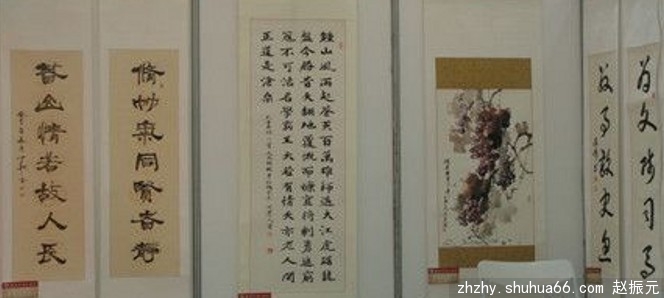 为文師司马
鍾山風雨起蒼黃百萬雄師過大江虎踞龍
盤今勝昔天翻地覆慨而慷宜將剩勇追窮
寇不可沽名學霸王天若有情天亦老人間
正道是滄桑
脩竹氣同賢者靜
春山情若故人長
zhzhy.shuhua66.com 赵振元